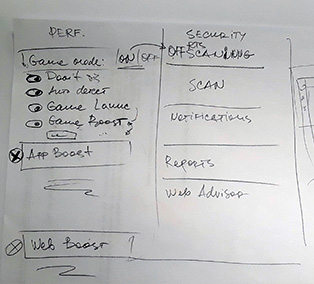 PERF.
Game mode: ON / OFF
Don't
Auto detect
Game Launc
Game Boost
App Boost
Web Boost
SECURITY
RTS
OFF SCANNING
SCAN
NOTIFICATIONS
Reports
Web Advisor